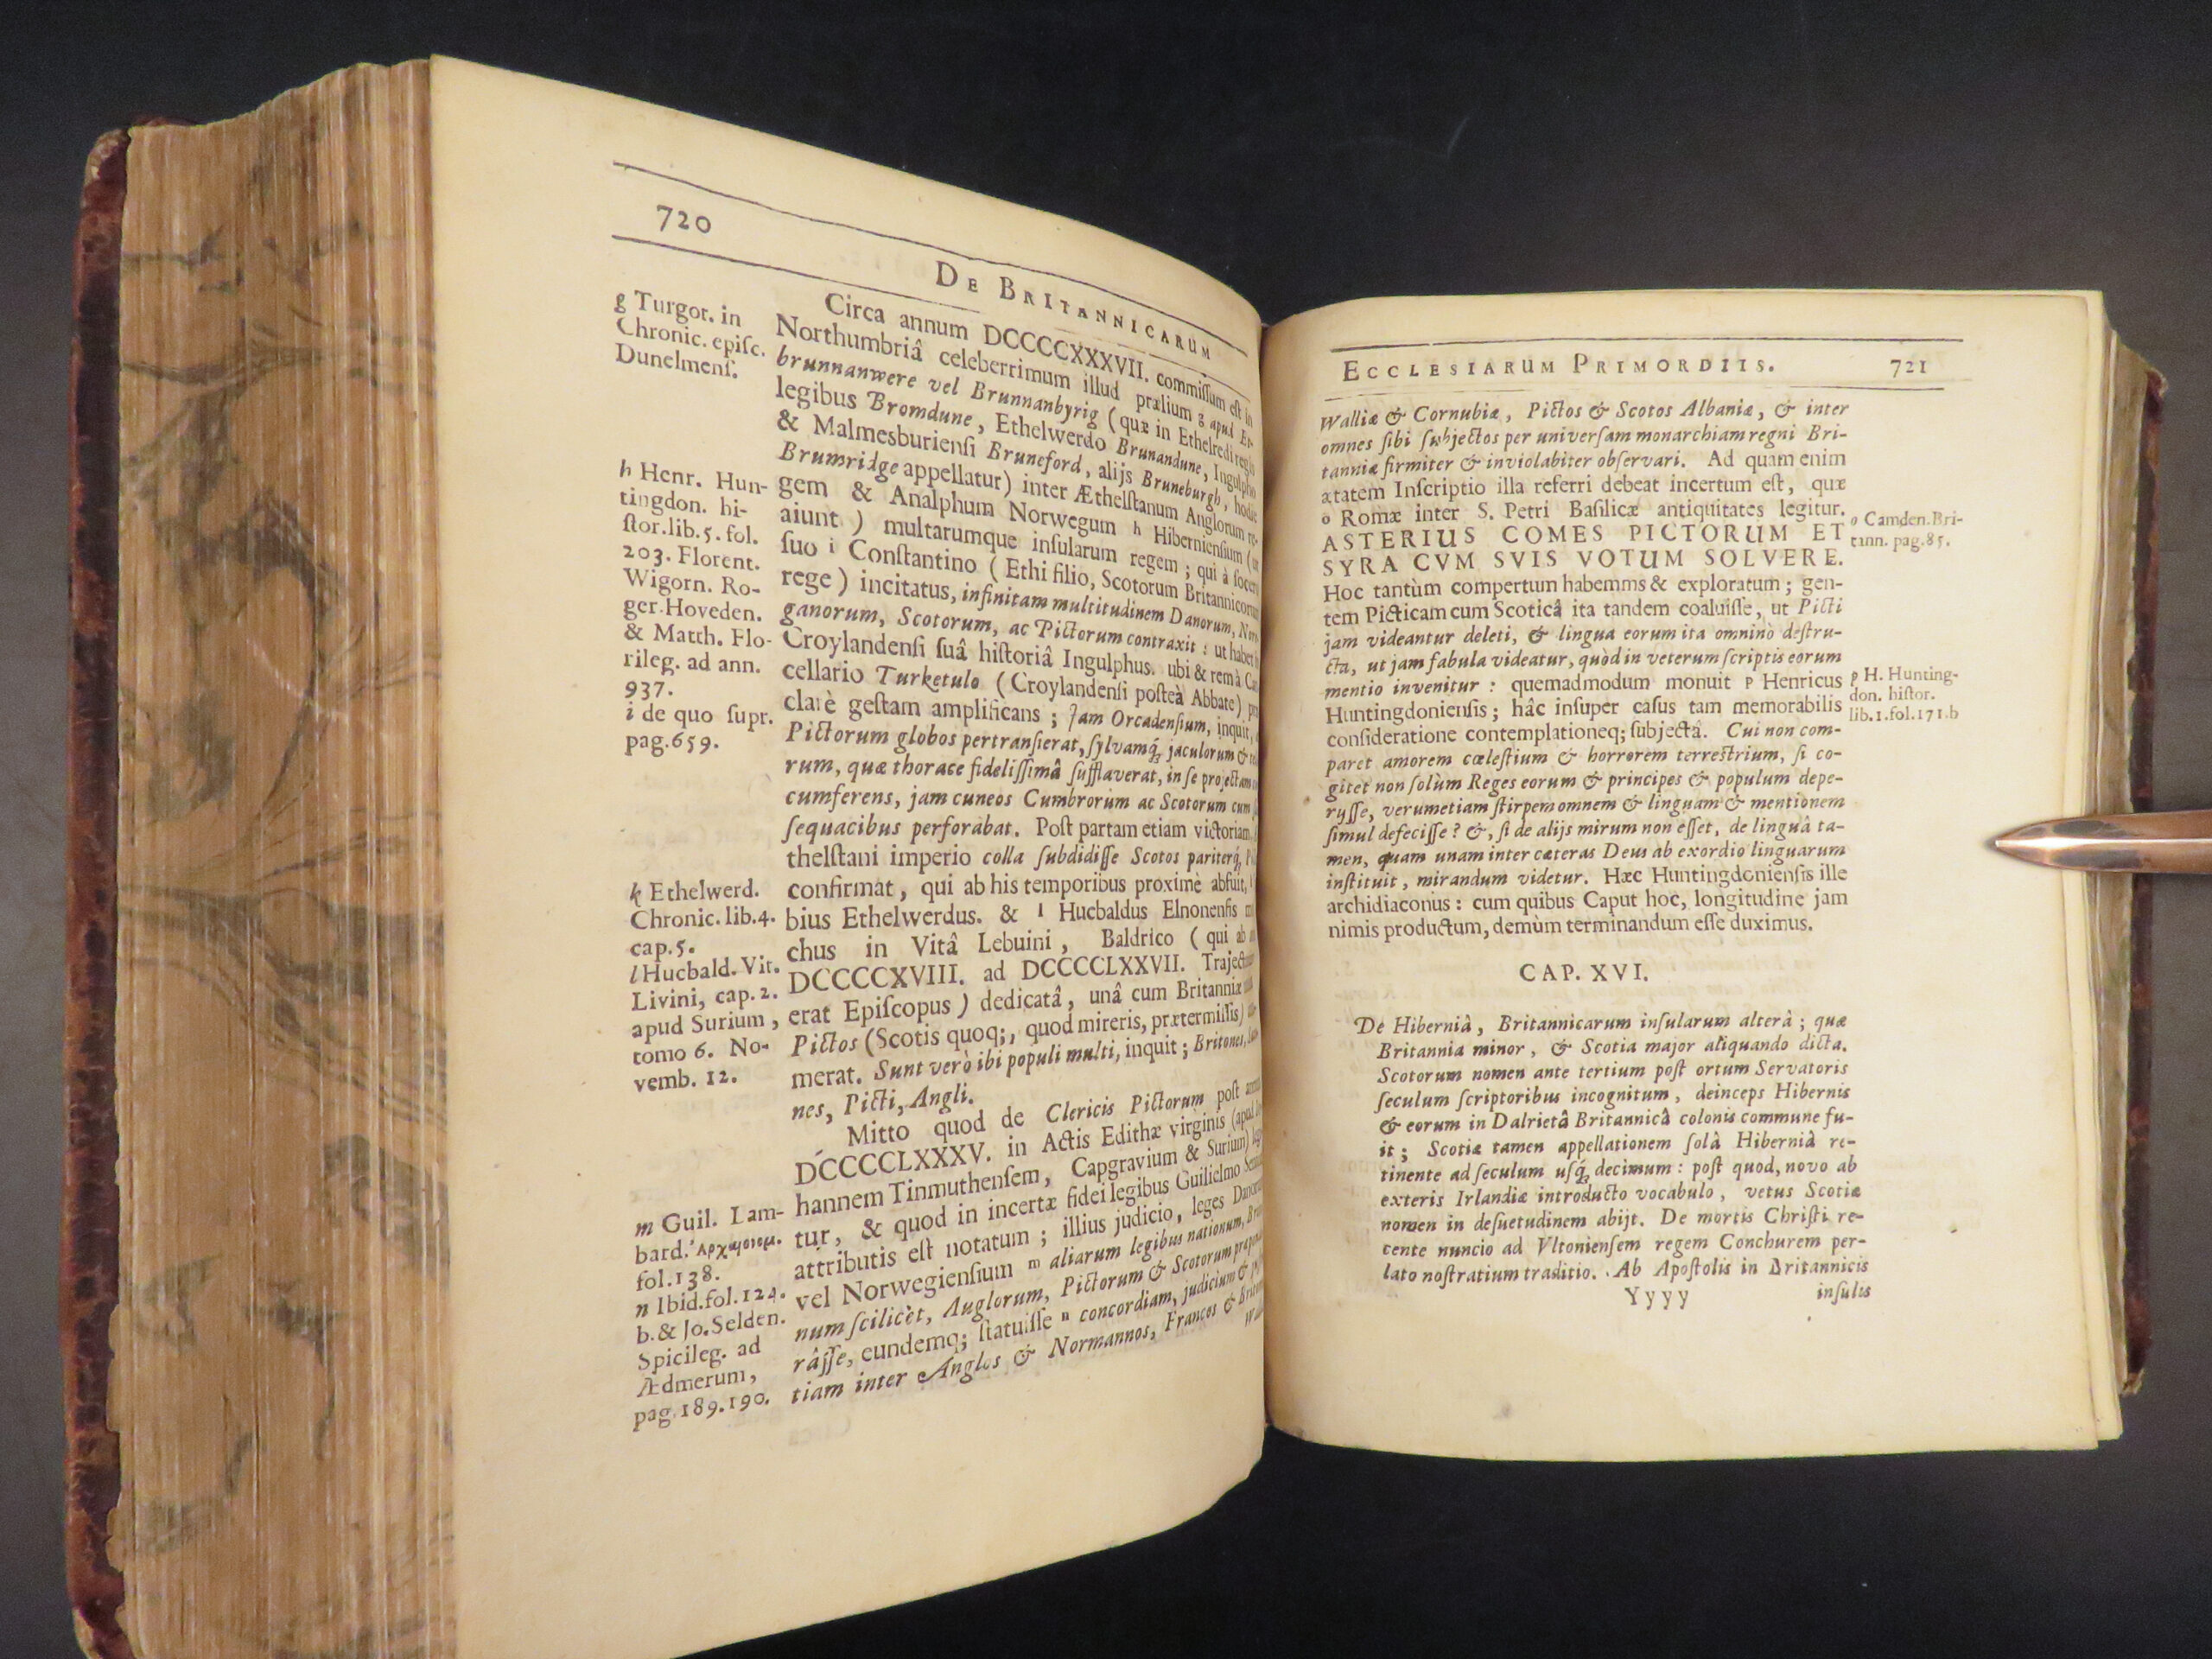 720
DE BRITANNICARUM
g Turgot. in
Chronic. episc.
Dunelmens.
h Henr. Hun-
tingdon. hi-
stor.lib.5. fol.
203. Florent.
Wigorn. Ro-
ger.Hoveden.
& Matth. Flo-
rileg. ad ann.
937.
i de quo supr.
pag.659.
k Ethelwerd.
Chronic. lib.4.
cap.5.
l Hucbald. Vit.
Livini, cap.2.
apud Surium,
tomo 6. No-
vemb. 12.
m Guil. Lam-
bard.
fol.138.
n Ibid.fol.124.
b.& Jo.Selden.
Spicileg. ad
Ædmerum,
pag.189.190.
Circa annum DCCCCXXXVII. commiſſum eſt in
Northumbriâ celeberrimum illud prælium g apud
brunnanwere vel Brunnanbyrig (quæ in Ethelredi regis
legibus Bromdune, Ethelwerdo Brunandune, Ingulpho
& Malmesburienſi Bruneford, alijs Bruneburgh, hodie
Brumridge appellatur) inter Æthelſtanum Anglorum re-
gem & Analphum Norwegum h Hibernienſium (ut
aiunt ) multarumque inſularum regem ; qui à ſocero
ſuo i Conſtantino ( Ethi filio, Scotorum Britannicorum
rege ) incitatus, infinitam multitudinem Danorum,
ganorum, Scotorum, ac Pictorum contraxit : ut habet
Croylandenſi ſuâ hiſtoriâ Ingulphus. ubi & rem à
cellario Turketulo ( Croylandenſi poſteà Abbate)
clarè geſtam amplificans ; Jam Orcadenſium, inquit,
Pictorum globos pertranſierat, ſylvamq́; jaculorum &
rum, quæ thorace fideliſſimâ ſufflaverat, in ſe projectam
cumferens, jam cuneos Cumbrorum ac Scotorum cum
ſequacibus perforabat. Poſt partam etiam victoriam,
thelſtani imperio colla ſubdidiſſe Scotos pariterq́;
confirmat, qui ab his temporibus proximè abfuit,
bius Ethelwerdus. & l Hucbaldus Elnonenſis
chus in Vitâ Lebuini, Baldrico ( qui ab
DCCCCXVIII. ad DCCCCLXXVII.
erat Epiſcopus ) dedicatâ, unâ cum Britanniæ
Pictos (Scotis quoq;, quod mireris, prætermiſſis)
merat. Sunt verò ibi populi multi, inquit ; Britones,
nes, Picti, Angli.
Mitto quod de Clericis Pictorum poſt
DCCCCLXXXV. in Actis Edithæ virginis (apud
hannem Tinmuthenſem, Capgravium & Surium)
tur, & quod in incertæ fidei legibus Guilielmo
attributis eſt notatum ; illius judicio, leges
vel Norwegienſium m aliarum legibus nationum,
num ſcilicèt, Anglorum, Pictorum & Scotorum
râſſe, eundemq; ſtatuiſſe n concordiam, judicium &
tiam inter Anglos & Normannos, Francos &
ECCLESIARUM PRIMORDIIS. 721
Walliæ & Cornubiæ, Pictos & Scotos Albaniæ, & inter
omnes ſibi ſubjectos per univerſam monarchiam regni Bri-
tanniæ firmiter & inviolabiter obſervari. Ad quam enim
ætatem Inſcriptio illa referri debeat incertum eſt, quæ
o Romæ inter S. Petri Baſilicæ antiquitates legitur.
ASTERIUS COMES PICTORUM ET
SYRA CVM SVIS VOTUM SOLVERE.
Hoc tantùm compertum habemms & exploratum ; gen-
tem Picticam cum Scoticâ ita tandem coaluiſſe, ut Picti
jam videantur deleti, & lingua eorum ita omninò deſtru-
cta, ut jam fabula videatur, quòd in veterum ſcriptis eorum
mentio invenitur : quemadmodum monuit p Henricus
Huntingdonienſis ; hâc inſuper caſus tam memorabilis
conſideratione contemplationeq; ſubjectâ. Cui non com-
paret amorem cæleſtium & horrorem terreſtrium, ſi co-
gitet non ſolùm Reges eorum & principes & populum depe-
ryſſe, verumetiam ſtirpem omnem & linguam & mentionem
ſimul defeciſſe ? &, ſi de alijs mirum non eſſet, de linguâ ta-
men, quam unam inter cæteras Deus ab exordio linguarum
inſtituit, mirandum videtur. Hæc Huntingdonienſis ille
archidiaconus : cum quibus Caput hoc, longitudine jam
nimis productum, demùm terminandum eſſe duximus.
o Camden.Bri-
tann. pag.85.
p H. Hunting-
don. hiſtor.
lib.1.fol.171.b
CAP. XVI.
De Hiberniâ, Britannicarum inſularum alterâ ; quæ
Britannia minor, & Scotia major aliquando dicta.
Scotorum nomen ante tertium poſt ortum Servatoris
ſeculum ſcriptoribus incognitum, deinceps Hibernis
& eorum in Dalrietâ Britannicâ colonis commune fu-
it ; Scotiæ tamen appellationem ſolâ Hiberniâ re-
tinente ad ſeculum uſq́; decimum : poſt quod, novo ab
exteris Irlandiæ introducto vocabulo, vetus Scotiæ
nomen in deſuetudinem abijt. De mortis Chriſti re-
cente nuncio ad Vltonienſem regem Conchurem per-
lato noſtratium traditio. Ab Apoſtolis in Britannicis
Yyyy inſulis